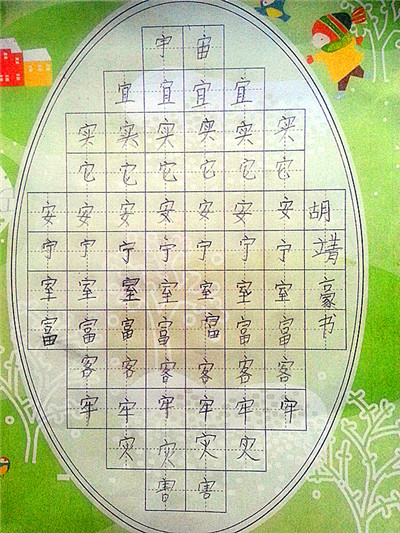 宇宙
宜宜宜宜
实实实实实实
它它它它它它
安安安安安安安
宁宁宁宁宁宁宁
室室室室室室室
富富富富富富富
客客客客客客
牢牢牢牢牢牢
灾灾灾灾
害害
胡靖豪书